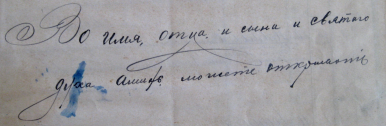 Во имя, отца, и сына и святого
духа Аминь можете открывать